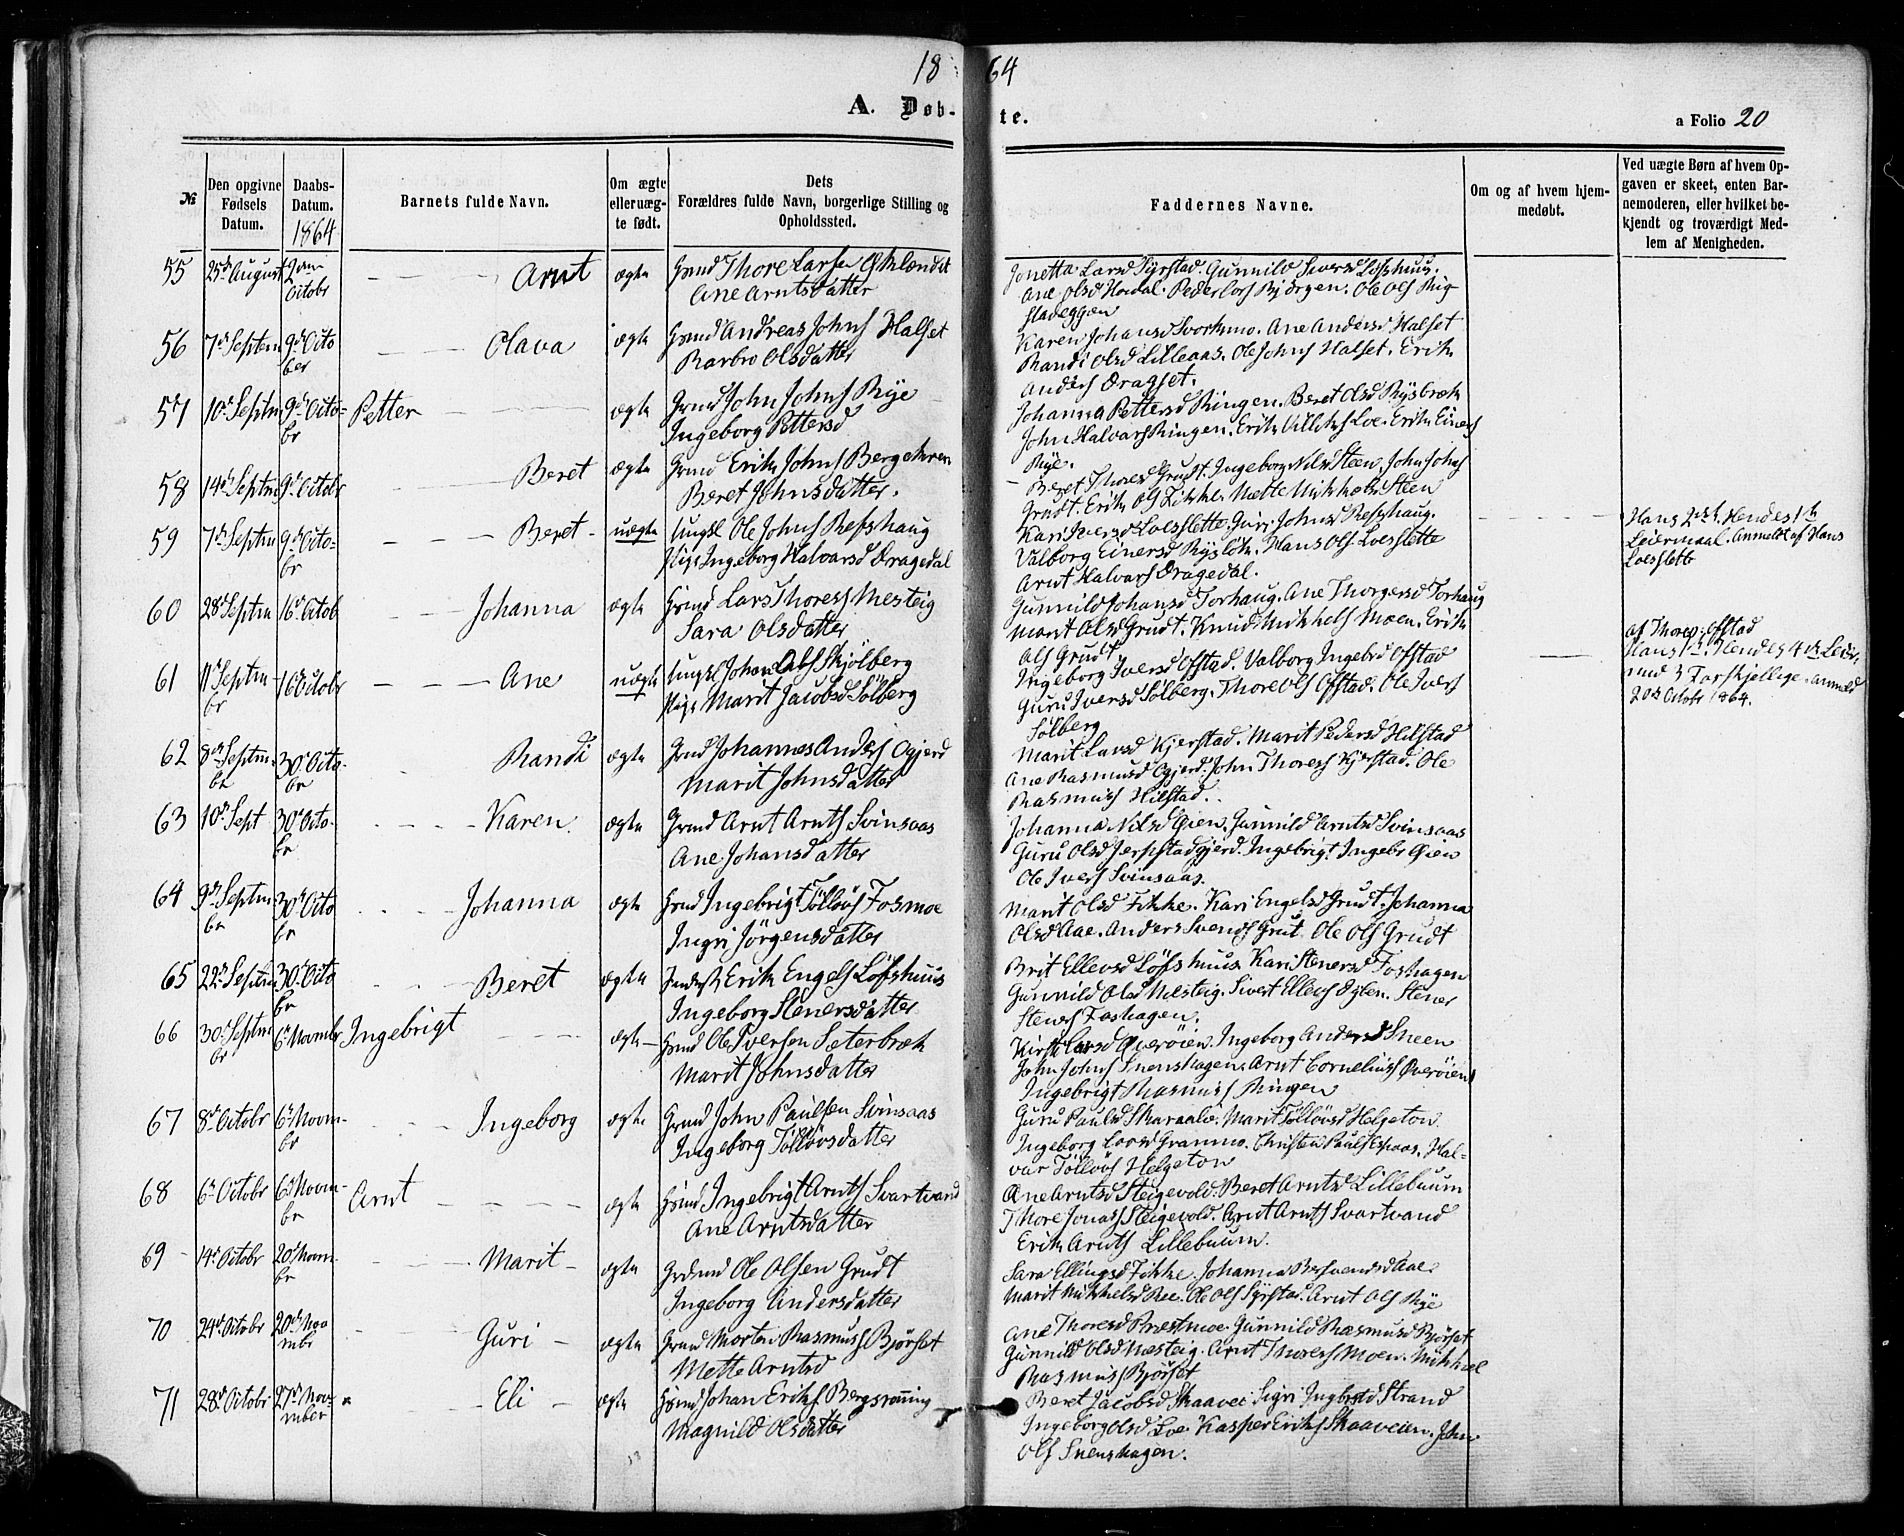 1864
A. Døbte.
a Folio 20
№
Den opgivne Fødsels Datum.
Daabs-Datum. 1864
Barnets fulde Navn.
Om ægte eller uægte født.
Dets Forældres fulde Navn, borgerlige Stilling og Opholdssted.
Faddernes Navne.
Om og af hvem hjemmedøbt.
Ved uægte Børn af hvem Opgaven er skeet, enten Barnemoderen, eller hvilket bekjendt og troværdigt Medlem af Menigheden.
55 25de August 2den Octobr Arnt ægte Grmd Thore Larsen
Ane Arntsdatter
Jonetta Larsd Syrstad. Gunnild Siversd
Ane Olsd Hovdal. Peder Lars Bjørgen. Ole Ols
56 7de Septem 9de October Olava ægte Grmd Andreas Johns Halset
Barbro Olsdatter
Karen Johansd Svorkmo. Ane Andersd Halset
Randi Olsd Lilleaas. Ole Johns Halset. Erik
Anders Dragset.
57 10de Septm 9de Octobr Petter ægte Grmd John Johns Rye
Ingeborg Pettersd
Johanna Pettersd Ringen. Beret Olsd Rysbræk
John Halvars Ringen. Erik Villiks Loe. Erik Einers
Rye.
58 14de Septm 9de Octobr Beret ægte Grmd Erik Johns
Beret Johnsdatter.
Beret Thoresd Grudt. Ingeborg Nilsd Steen. John Johns
Grudt. Erik Ols Fikke. Mette Mikkelsd Steen
59 7de Septm 9de Octobr Beret uægte Ungkl Ole Johns Refshaug
Pige Ingeborg Halvarsd Dragedal
Kari Iversd Loeslette. Guri Johnsd Refshaug.
Valborg Einersd Rysløk. Hans Ols Loeslette
Arnt Halvars Dragedal.
Hans 2det, Hendes 1te
Leiermaal. Anmeldt af Hans
Loeslette
60 28de Septm 16de Octob Johanna ægte Grmd Lars Thoress Mesteig
Sara Olsdatter
Gunnild Johansd Torhaug. Ane Thorgersd Torhaug
Marit Olsd Grudt. Knud Mikkels Moen. Erik
Ols Grudt
61 11de Septmbr 16de Octobr Ane uægte Ungkl Johan Olss Skjølberg
Pige Marit Jacobsd Sølberg
Ingeborg Iversd Ofstad. Valborg Ingebrd Ofstad
Guru Iversd Sølberg. Thore Ols Ofstad. Ole Ivers
Sølberg
af Thore Ofstad
Hans 1te. Hendes 4de Leier.
med 3 Forskjellige. anmeld
20de Octobr 1864.
62 8de Septmbr 30de Octobr Randi ægte Grmd Johannes Anders Ogjerd
Marit Johnsdatter
Marit Larsd Kjerstad. Marit Pedersd Hilstad
Ane Rasmusd Ogjerd. John Thoress Kjerstad. Ole
Rasmuss Hilstad.
63 10de Sept 30de Octobr Karen ægte Grmd Arnt Arnts Svinsaas
Ane Johansdatter
Johanna Nilsd Øien. Gunnild Arntsd Svinsaas
Guru Olsd Jerpstadgjerd. Ingebrigt Ingebr Øien
Ole Ivers Svinsaas.
64 9de Septmbr 30de Octobr Johanna ægte Grmd Ingebrigt Tølløvs Fosmoe
Ingri Jørgensdatter
Marit Olsd Fikke. Kari Engelsd Grudt. Johanna
Olsd Aae. Anders Svends Grut. Ole Ols Grudt
65 22de Septm 30de Octobr Beret ægte Erik Engels Løfshuus
Ingeborg Stenersdatter
Brit Ellevsd Løfshuus Kari Stenersd Foshagen
Gunnild Olsd Mesteig. Sivert Ellevs Stener
Steners Foshagen.
66 30de Septmbr 6te Novmbr Ingebrigt ægte Grmd Ole Iversen Sæterbræk
Marit Johnsdatter
Kirsti Larsd Overøien. Ingeborg Andersd Sneen
John Johns Sneushagen. Arnt Corneliuss Overøien
Ingebrigt Rasmuss Ringen
67 8de Octobr 6te Novmbr Ingeborg ægte Grmd John Paulsen Svinsaas
Ingeborg Tølløvsdatter
Guru Paulsd Skaraalie. Marit Tølløvsd Helgeton
Ingeborg Larsd Granmo. Christen Pauls Espaas. Halvar
Tølløvs Helgeton
68 6te Octobr 6te Novmbr Arnt ægte Grmd Ingebrigt Arnts Svartvand
Ane Arntsdatter
Ane Arntsd Steigevold. Beret Arntsd Lillebuum
Thore Jonass Steigevold. Arnt Arnts Svartvand
Erik Arnts Lillebuum.
69 14de Octobr 20de Novmbr Marit ægte Grdmd Ole Olsen Grudt
Ingeborg Andersdatter
Sara Ellingsd Fikke. Johanna Aae
Marit Mikkelsd Ree. Ole Ols Syrstad. Arnt Ols Rye
70 24de Octobr 20de Novmbr Guri ægte Grmd Morten Rasmuss Bjørset
Mette Arntsd
Ane Thoresd Præstmoe. Gunnild Rasmusd Bjørset
Gunnild Olsd Mesteig. Arnt Thoress Moen. Mikkel
Rasmuss Bjørset
71 28de Octobr 27de November Eli ægte Grmd Johan Eriks Bergsrønning
Magnild Olsdatter
Beret Jacobsd Skaavei. Sigri Ingbrtd Strand
Ingeborg Olsd Loe. Kasper Eriks Skaaveien. John
Ols Sneushagen.